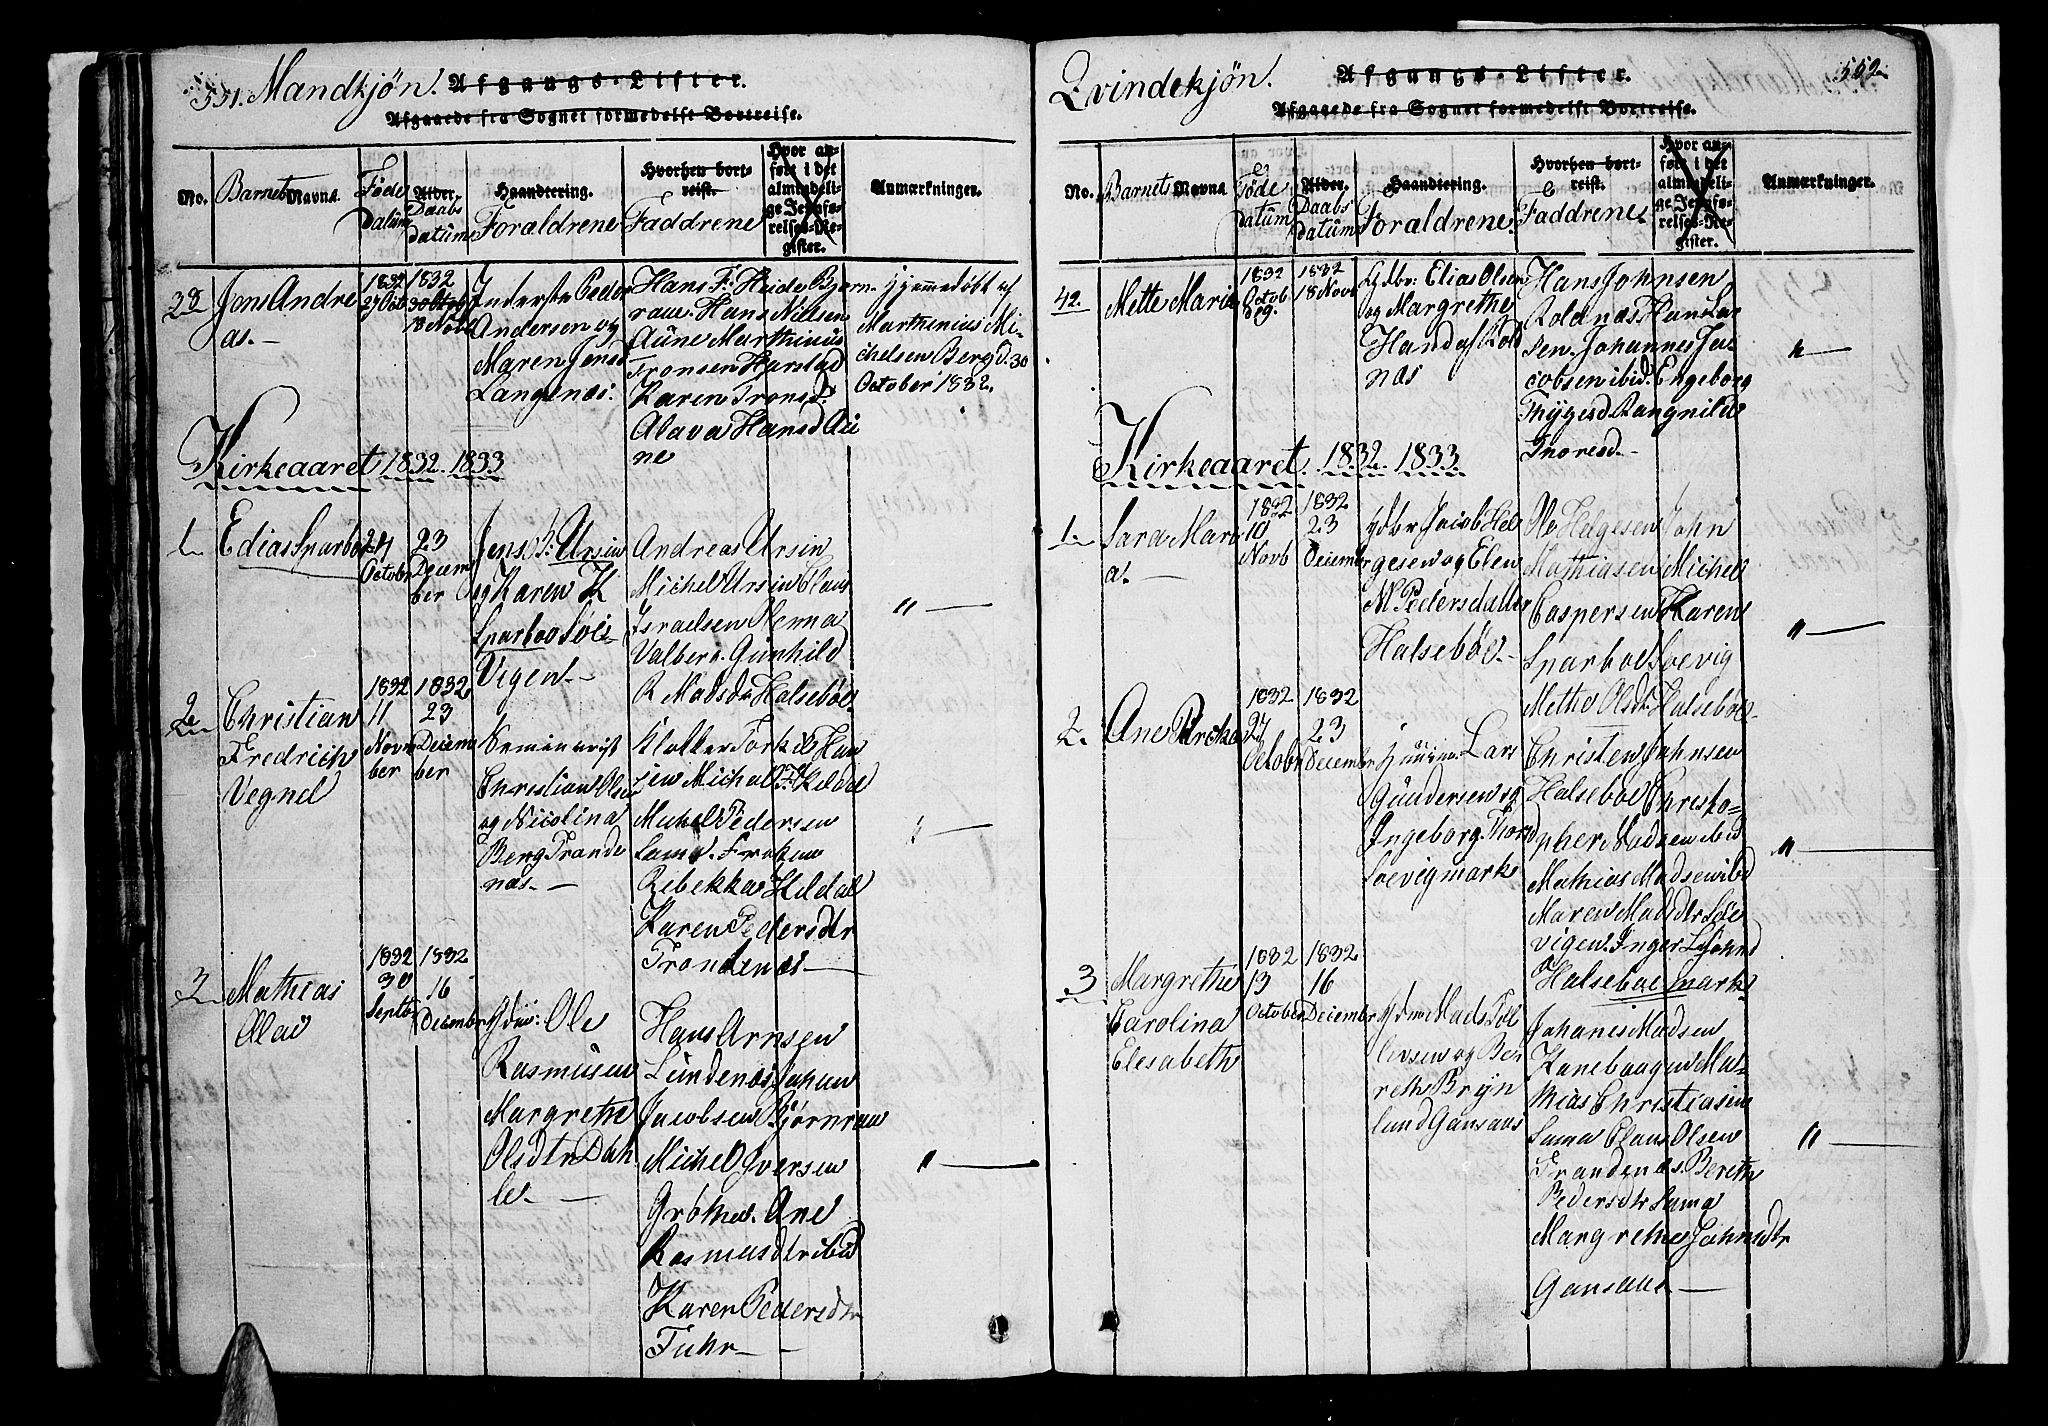 551. Mandkjøn. Afgangs-Lister.
Afgaaede fra Sognet formedelst Bortreise.
No.
Barnets Navne.
Føde
Datum
Alder.
Daabs
datum
Haandtering.
Forældrene
Hvorhen bort-
reist.
Faddrene
Hvor an-
ført i det
almindeli-
ge Jevnfø-
relses-Re-
gister.
Anmærkninger.
Jens Andre
as.-
1832
27 Octb
1832
Inderste Peder
Andersen og
Maren Jensd
Langenæs.
Hans F. Heide Bjørn-
raae. Hans Nilsen
Aune Marthinus
Tronsen Harstad
Karen Tronsd.
Olava Hansd Au
ne
Hjemmedøbt af
Marthenius Mi-
chelsen Berg d. 30
October 1832.
Kirkeaaret 1832. 1833
1.
Edias Sparboe
24
Octobr
23
Decem
ber
Jens B. Ursin
og Karen K
Sparboe Søe-
Vigen.-
Andreas Ursin
Michel Ursin Claus
Israelsen
Valberg. Gunhild
R Madsdr Halsebøe
"
2.
Christian
Fredrich
Vegnel
1832
11
Novm
ber
1832
23
Decem
ber
Seminarist
Christian Olsen
og Nicolina
Berg Tronde
næs.-
Klokker
Michal F. Hildal
Michel Pedersen
Sama. Frøken
Rebekka Hildal
Karen Pedersdtr
Trondenæs-
"
3
Mathias
Olai
1832
30
Septb
1832
16
Decembr
Gdm: Ole
Rasmusen
Margrethe
Olsdtr Dah
le.-
Hans Arnsen
Lundenæs Johan
Jacobsen Bjørnraae
Michel Iversen
Grøthe. Ane
Rasmusdtr ibid
Karen Pedersdtr
Fuhr-
"
Qvindekjøn. Afgangs-Lister. 552
Afgaaede fra Sognet formedelst Bortreise.
No.
Barnets Navne
Føde
datum
Alder.
Daabs
datum
Haandtering.
Foraldrene
Hvorhen bort-
reist.
Faddrene
Hvor an-
ført i det
almindeli-
ge Jevnfø-
relses-Re-
gister.
Anmærkninger.
42.
Mette Maria
1832
Octob
1832
18 Novb
Gdbr: Elias Olsen
og Margrethe
Hansd af Rold
næs
Hans Johnsen
Roldnæs Hans La
sen. Johannes Ja-
cobsen ibid. Engeborg
Thygesd Rangnild
Thoresd.-
"
Kirkeaaret. 1832. 1833
1.
Sara Mari
a.-
1832
10
Novb
1832
23
Decembr
Gdbr Jacob Hel
gesen og Elen
M Pedersdatter
Halsebøe.-
Ole Helgesen John
Mathiasen Michel
Caspersen Karen
Sparboe Soevig
Methe Olsdtr Halsebøe-
"
2.
Ane
1832
27
Octobr
1832
23
Decembr
Lars
Gundersen og
Ingeborg Thord
Soevigmark
Christen Johnsen
Halsebøe Christo-
pher Madsen ibid
Mathias Madsen ibid
Maren Madsdtr Søe
vigen. Inger
Halsebøemark
"
3
Margrethe
Carolina
Elesabeth
1832
13
October
1832
16
Decembr
Gdm Mads Tol
levsen og Ber
reth Bryn
lund Gansaas
Johanes Madsen
Kanebogen Ma-
thias Christiasen
Sama Claus Olsen
Trondenæs. Bereth
Pedersdtr Sama
Margrethe Johnsdtr
Gansaas-
"